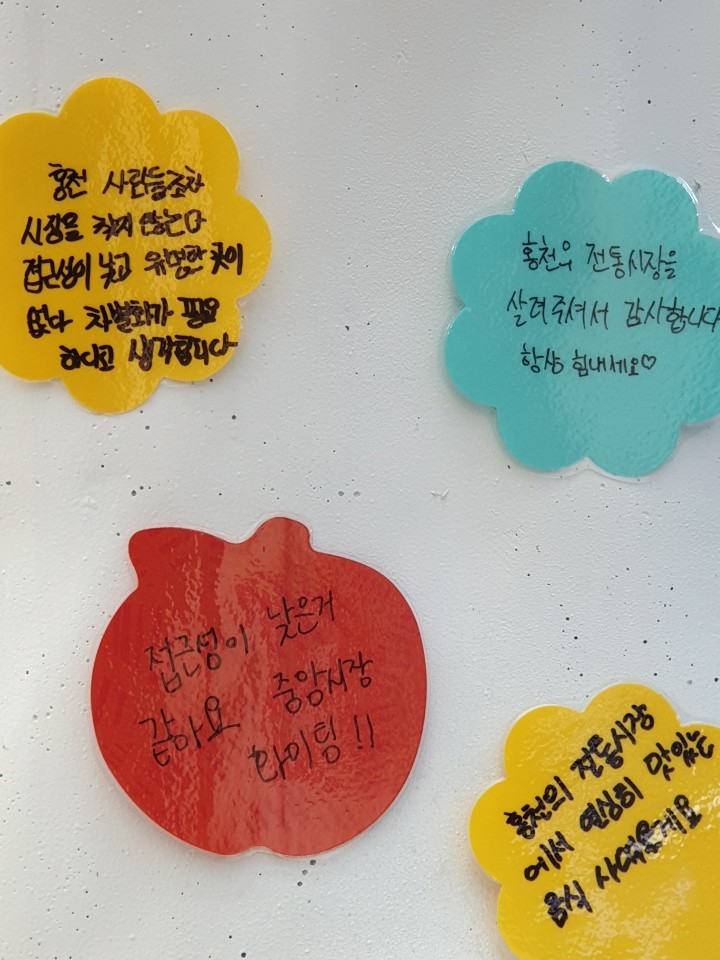 홍천 사람들조차
시장을 찾지 않는다
접근성이 낮고 유명한 곳이
없다 차별화가 필요
하다고 생각합니다
홍천의 전통시장을
살려주셔서 감사합니다
항상 힘내세요♡
접근성이 낮은거
같아요 중앙시장
화이팅!!
홍천의 전통시장
에서 열심히 맛있는
음식